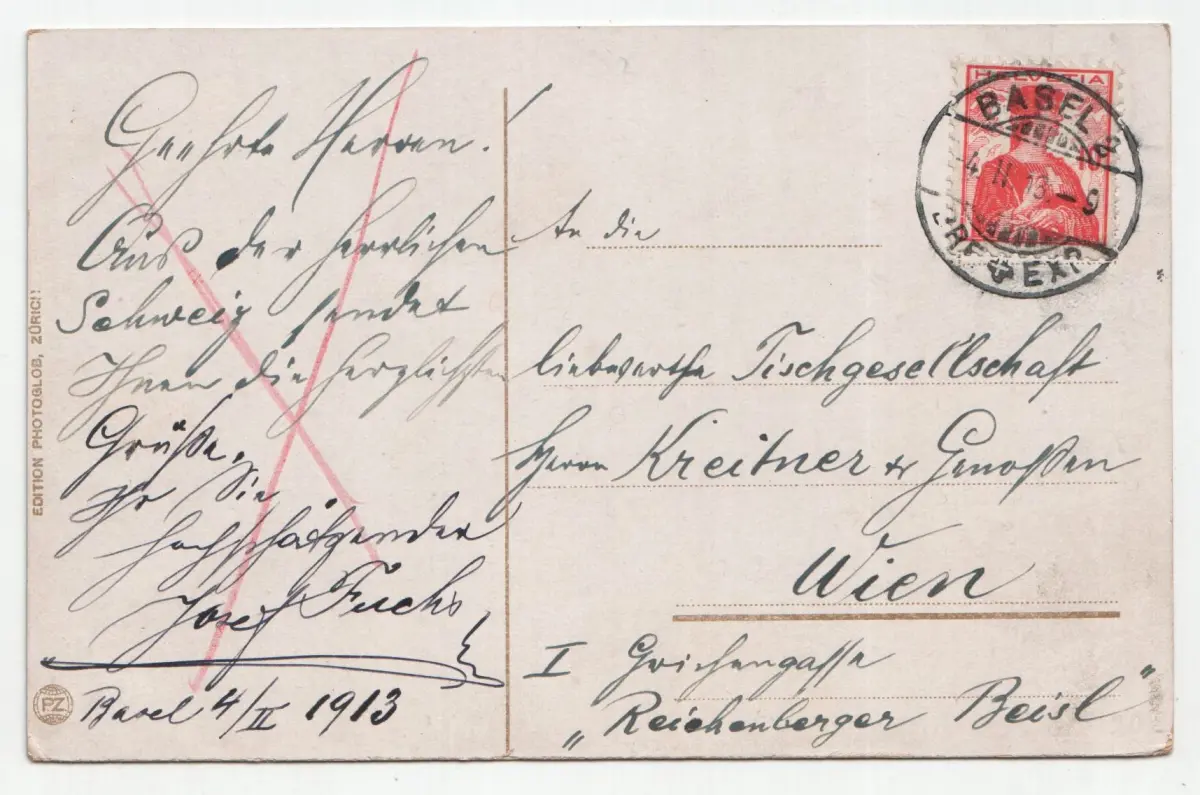 Geehrte Herren!
Aus der herrlichen
Schweiz sendet
Ihnen die herzlichsten
Grüße.
Ihr Sie
hochschätzender
Josef Fuchs
Basel 4/II 1913
EDITION PHOTOGLOB, ZÜRICH
PZ
HELVETIA
10
BASEL 2
4.II.13.-9
BRF EXP.
An die
liebwerthe Tischgesellschaft
Herrn Kreitner & Genoßen
Wien
I Grichengasse
„Reichenberger Beisl"